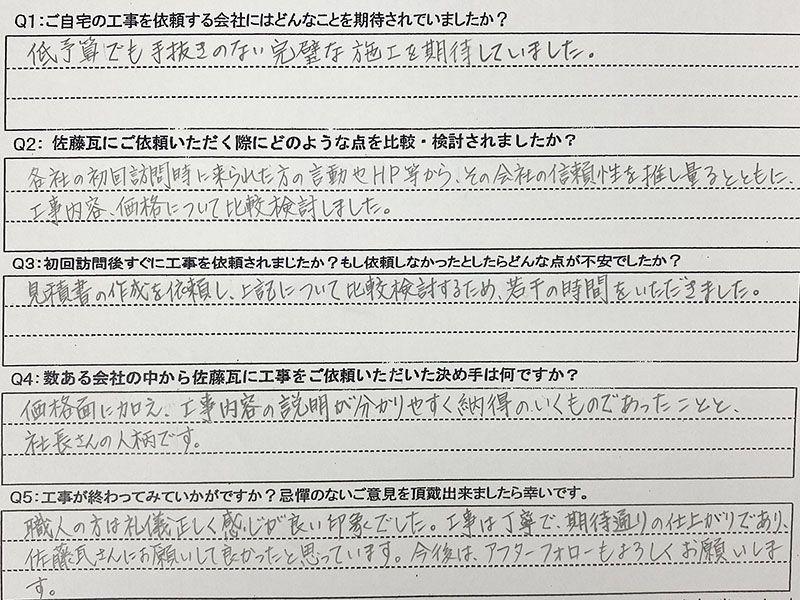 Q1:ご自宅の工事を依頼する会社にはどんなことを期待されていましたか？
低予算でも手抜きのない完璧な施工を期待していました。
Q2: 佐藤瓦にご依頼いただく際にどのような点を比較・検討されましたか？
各社の初回訪問時に来られた方の言動やHP等から、その会社の信頼性を推し量るとともに、
工事内容、価格について比較検討しました。
Q3:初回訪問後すぐに工事を依頼されましたか?もし依頼しなかったとしたらどんな点が不安でしたか？
見積書の作成を依頼し、上記について比較検討するため、若干の時間をいただきました。
Q4:数ある会社の中から佐藤瓦に工事をご依頼いただいた決め手は何ですか？
価格面に加え、工事内容の説明が分かりやすく納得のいくものであったことと、
社長さんの人柄です。
Q5:工事が終わってみていかがですか？忌憚のないご意見を頂戴出来ましたら幸いです。
職人の方は礼儀正しく感じが良い印象でした。工事は丁寧で、期待通りの仕上がりであり、
佐藤瓦さんにお願いして良かったと思っています。今後は、アフターフォローもよろしくお願いしま
す。